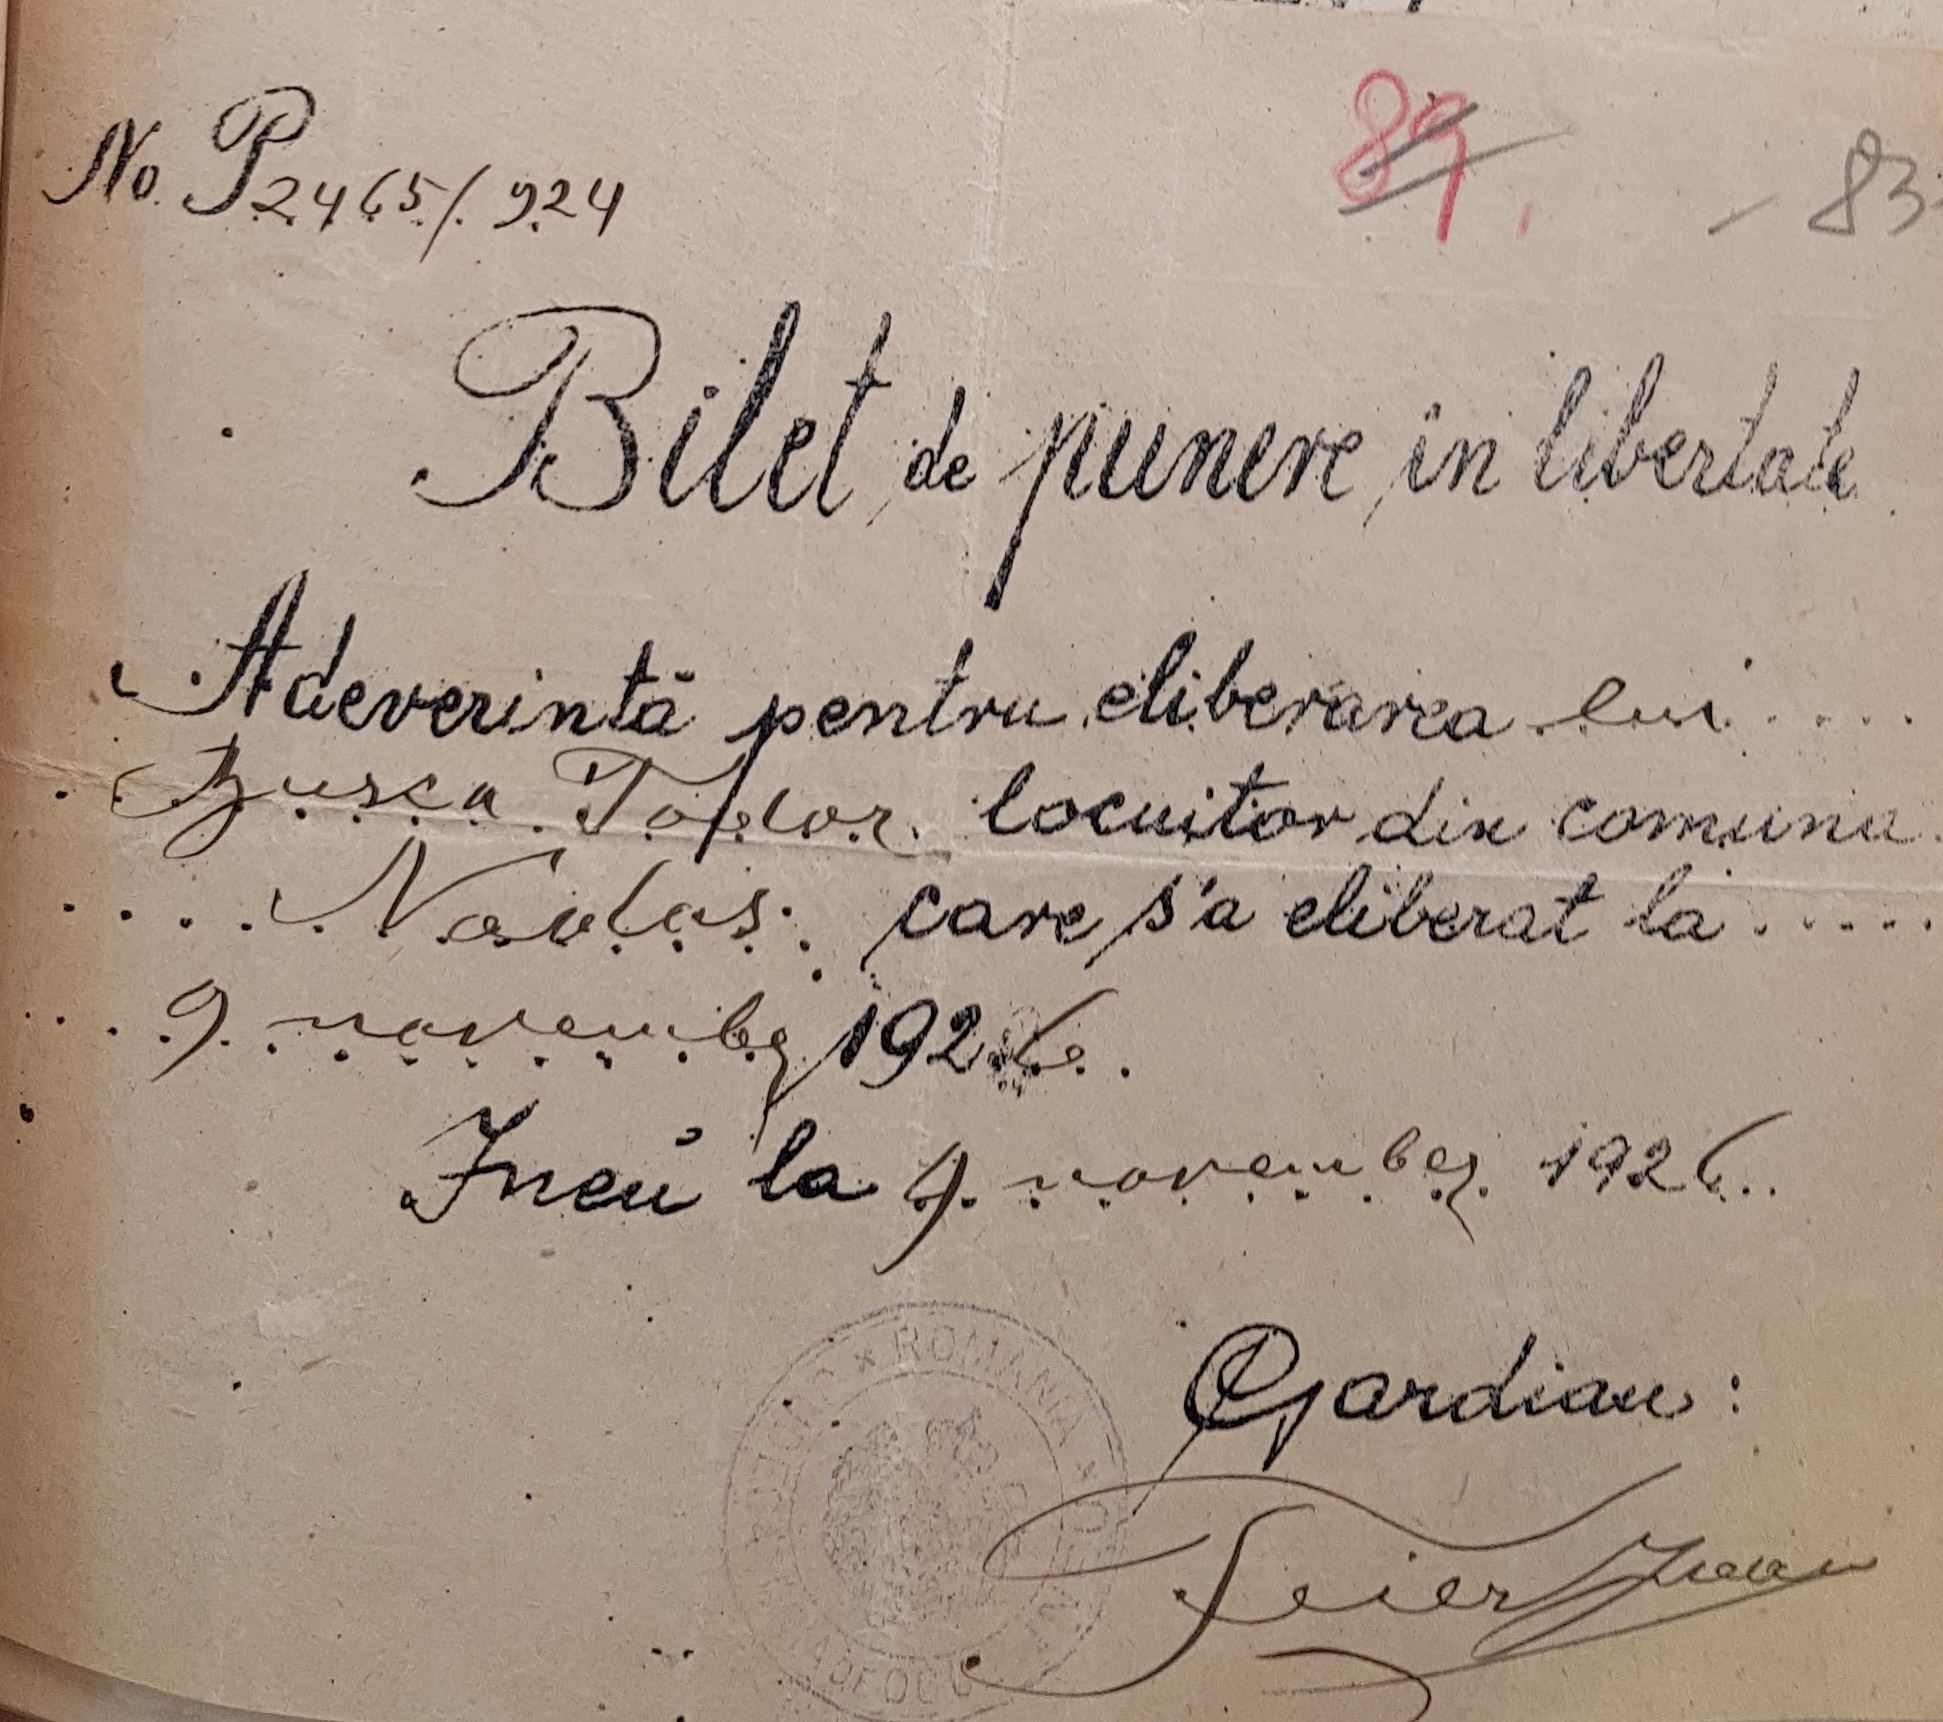 No. P 2465/924
89. - 83
Bilet de punere in libertate
Adeverintă pentru eliberarea lui ....
Bușca Todor locuitor din comuna
.... Nadas care s'a eliberat la .....
... 9 novembr 1926.
Ineu la 9 novembr. 1926..
Gardian:
Feier Ioan
* ROMANIA *